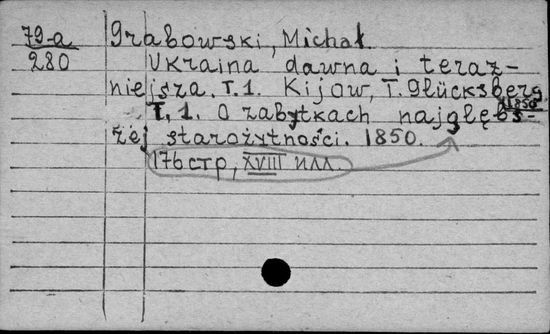 79-a Grabowski, Michał.
280 Ukraina dawna i teraz-
niejsza. T. 1. Kijow, T. Glücksberg
1850
T. 1. O zabytkach najgłęb-
zej starożytności. 1850.
176 стр, XVIII илл.